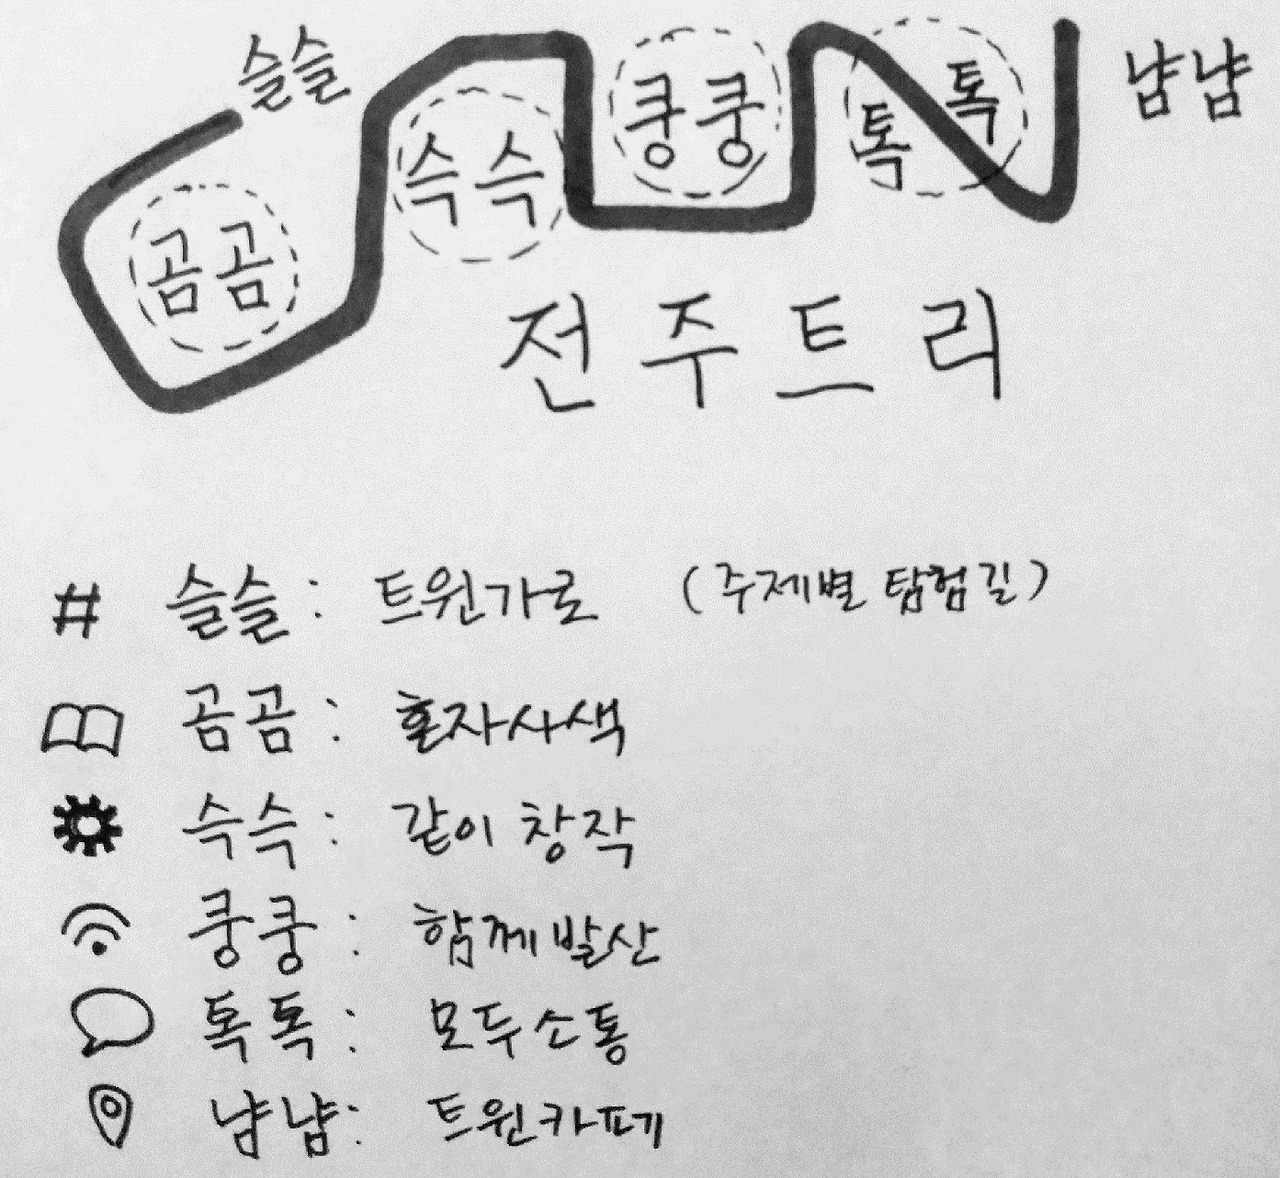 슬슬
곰곰
슥슥
쿵쿵
톡톡
냠냠
전주트리
# 슬슬 : 트윈가로 (주제별 탐험길)
곰곰 : 혼자사색
슥슥 : 같이 창작
쿵쿵 : 함께발산
톡톡 : 모두소통
냠냠 : 트윈카페